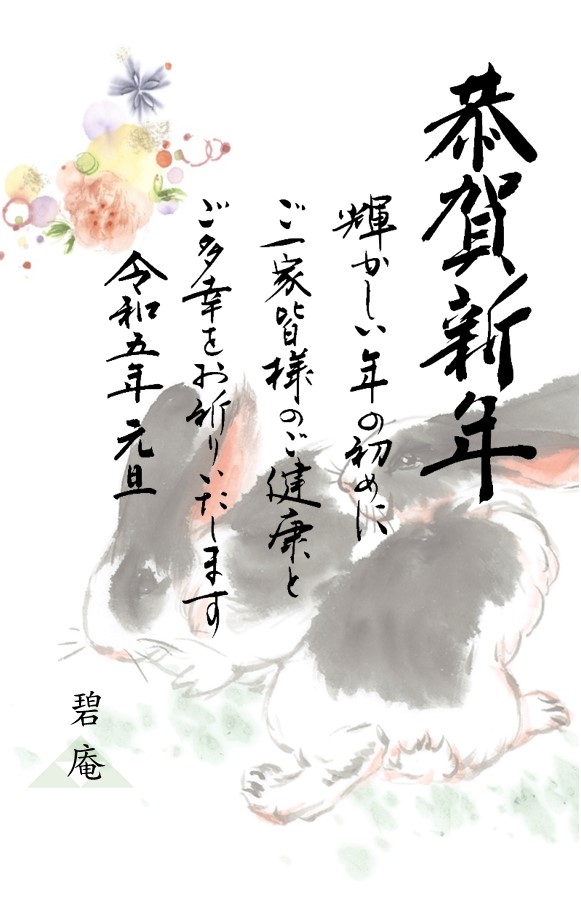 恭賀新年
輝かしい年の初めに
ご一家皆様のご健康と
ご多幸をお祈りいたします
令和五年 元旦
碧庵